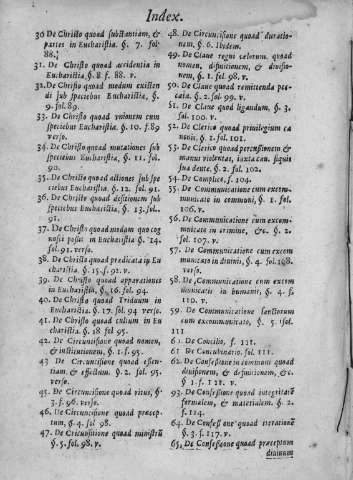 Index.
30 De Christo quod substantiam, &
partes in Eucharistia. §. 7. fol
88.
31. De Christo quoad accidentia in
Eucharistia, §. 8 f. 88. v.
32. De Christo quoad modum existen
di sub speciebus Eucharistia, §.
9. fol. 89.
33. De Christo quoad unionem cum
speciebus Eucharistia §. 10. f. 89
verso.
34. De Christo quoad mutationes sub
speciebus Eucharistia, §. 11. fol.
90.
35. De Christo quoad actiones sub spe
ciebus Eucharistia, §. 12. fol. 91.
36. De Christo quoad desitionem sub
speciebus Eucharistia, §. 13. fol.
91.
37. De Christo quoad modum quo cog
nosci possit in Eucharistia, §. 14.
fol. 91. verso.
38. De Christo quoad predicata in Eu
charistia §. 15. f. 92. v.
39. De Christo quoad apparationes
in Eucharistia, §. 16. fol. 94.
40. De Christo quoad Triduum in
Eucharistia. §. 17. fol. 94 verso.
41. De Christo quoad cultum in Eu
charistia. §. 18 fol 95.
42. De Circuncisione quoad nomen,
& institutionem, §. 1. f. 95.
43. De Circuncisione quoad essen-
tiam, & effectum. §. 2. fol. 95.
verso.
45. De Circuncisione quoad ritus, §.
3. f. 96. verso.
46. De Circuncisione quoad præcep-
tum, §. 4. fol 98.
47. De Circuncisione quoad ministrū
§. 5. fol. 98. v.
48. De Circuncisione quoad duratio-
nem, §. 6. Ibidem.
49. De Clave regni cælorum, quoad
nomen, definitionem, & divisio-
nem, §. 1. fol. 98. v.
50. De Clave quoad remittenda pec-
cata, §. 2. fol. 99. v.
51. De Clave quoad ligandum, §. 3.
fol. 100. v.
52. De Clerico quoad privilegium ca
nonis, §. 1. fol. 101.
53. De Clerico quoad percussionem &
manus violentas, iuxta can. siquis
suadente, §. 2. fol. 102.
54. De Complice, f. 104.
55. De Communicatione cum excom-
municato in communi, §. 1. fol.
106. v.
56. De Communicatione cum excom-
municato in crimine, &c. §. 2.
fol. 107. v.
57. De Communicatione cum excom-
municato in divinis, §. 4. fol. 108.
verso.
58. De Communicatione cum excom-
municato in humanis, §. 4. f.
110. v.
59. De Communicatione sanctorum
cum excommunicato, §. 5. fol.
111
60 De Concilio, f. 111.
61 De Concubinario, fol. 111.
62 De Confessione in communi quoad
divisionem, & definitionem, &c.
§ 1. f 111. v.
93. De Confessione quoad integritatē
formalem, & materialem. §. 2.
f. 114.
64 De Confessione quoad iterationē
§. 3. f. 117. v.
65. De Confessione quoad præceptum
divinum